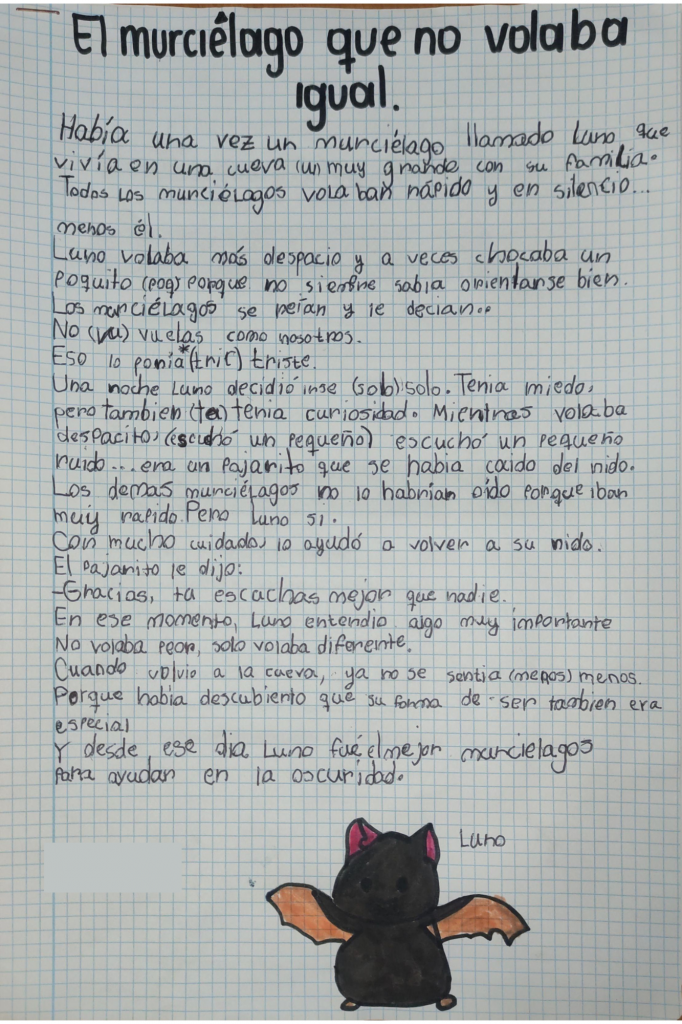 El murciélago que no volaba
igual.
Había una vez un murciélago llamado Luno que
vivía en una cueva (un muy grande con su familia.
Todos los murciélagos volaban rápido y en silencio...
menos él.
Luno volaba más despacio y a veces chocaba un
poquito (poq) porque no siempre sabia orientarse bien.
Los murciélagos se reían y le decian...
No (vu) vuelas como nosotros.
Eso lo ponía*(tric) triste.
Una noche Luno decidió irse (sob) solo. Tenia miedo,
pero tambien (ta) tenia curiosidad. Mientras volaba
despacito, (escuchó un pequeño) escuchó un pequeño
ruido... era un pajarito que se habia caido del nido.
Los demas murciélagos no lo habrían oído porque iban
muy rapido. Pero Luno si.
Con mucho cuidado, lo ayudó a volver a su nido.
El pajarito le dijo:
-Gracias, tu escuchas mejor que nadie.
En ese momento, Luno entendio algo muy importante
No volaba peor, solo volaba diferente.
Cuando volvio a la cueva, ya no se sentia (menos) menos.
Porque habia descubierto que su forma de ser tambien era
especial
Y desde ese dia Luno fué el mejor murcielagos
para ayudar en la oscuridad.
Luno